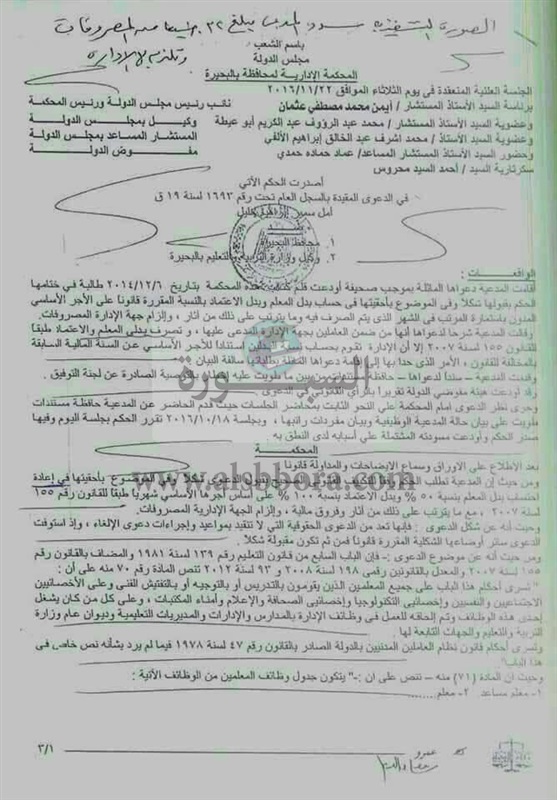 الصورة التنفيذية
باسم الشعب
مجلس الدولة
المحكمة الإدارية لمحافظة بالبحيرة
الجلسة العلنية المنعقدة فى يوم الثلاثاء الموافق ٢٠١٦/١١/٢٢
برئاسة السيد الأستاذ المستشار / أيمن محمد مصطفي عثمان نائب رئيس مجلس الدولة ورئيس المحكمة
وعضوية السيد الأستاذ المستشار / محمد عبد الرؤوف عبد الكريم أبو عيطة وكيل بمجلس الدولة
وعضوية السيد الأستاذ / محمد اشرف عبد الخالق إبراهيم الألفي المستشار المساعد بمجلس الدولة
وحضور السيد الأستاذ المستشار المساعد/ عماد حماده حمدي مفوض الدولة
سكرتارية السيد / أحمد السيد محروس
أصدرت الحكم الآتي
في الدعوى المقيدة بالسجل العام تحت رقم ١٦٩٣ لسنة ١٩ ق
أمل سمير
١. محافظ البحيرة
٢. وكيل وزارة التربية والتعليم بالبحيرة
الواقعات :
أقامت المدعية دعواها الماثلة بموجب صحيفة أودعت قلم كتاب هذه المحكمة بتاريخ ٢٠١٤/١٢/٦ طالبة في ختامها
الحكم بقبولها شكلاً وفى الموضوع بأحقيتها فى حساب بدل المعلم وبدل الاعتماد بالنسبة المقررة قانوناً على الأجر الأساسي
المدون باستمارة المرتب في الشهر الذي يتم الصرف فيه وما يترتب على ذلك من أثار ، وإلزام جهة الإدارة المصروفات.
وقالت المدعية شرحا لدعواها أنها من ضمن العاملين بجهة الإدارة المدعى عليها ، و تصرف بدلى المعلم والاعتماد طبقا
للقانون ١٥٥ لسنة ٢٠٠٧ إلا أن الإدارة تقوم بحساب البدلين استنادا للأجر الأساسي عن السنة المالية السابقة
بالمخالفة للقانون ، الأمر الذى حدا بها إلى إقامة دعواها الماثلة بطلباتها سالفة البيان .
وقدمت المدعية – سندا لدعواها – حافظة مستندات من بين ما طويت عليه التوصية الصادرة عن لجنة التوفيق .
وقد أودعت هيئة مفوضي الدولة تقريراً بالرأي القانوني في الدعوى .
وجرى نظر الدعوى أمام المحكمة على النحو الثابت بمحاضر الجلسات حيث قدم الحاضر عن المدعية حافظة مستندات
طويت على بيان حالة المدعية الوظيفية وبيان مفردات راتبها ، وبجلسة ٢٠١٦/١٠/١٨ تقرر الحكم بجلسة اليوم وفيها
صدر الحكم وأودعت مسودته المشتملة على أسبابه لدى النطق به
المحكمة
بعد الإطلاع على الأوراق وسماع الإيضاحات والمداولة قانوناً .
ومن حيث إن المدعية تطلب الحكم بقبول الدعوى شكلاً وفى الموضوع بأحقيتها في إعادة
احتساب بدل المعلم بنسبة ٥٠ % وبدل الاعتماد بنسبة ١٠٠ % على أساس أجرها الأساسي شهرياً طبقا للقانون رقم ١٥٥
لسنة ٢٠٠٧ ، مع ما يترتب على ذلك من أثار وفروق مالية ، وإلزام الجهة الإدارية المصروفات.
وحيث أنه عن شكل الدعوى : فإنها تعد من الدعوى الحقوقية التي لا تتقيد بمواعيد وإجراءات دعوى الإلغاء ، وإذ استوفت
الدعوى سائر أوضاعها الشكلية المقررة قانوناً فمن ثم تكون مقبولة شكلاً .
ومن حيث أنه عن موضوع الدعوى :- فإن الباب السابع من قانون التعليم رقم ١٣٩ لسنة ١٩٨١ والمضاف بالقانون رقم
١٥٥ لسنة ٢٠٠٧ والمعدل بالقانونين رقمى ١٩٨ لسنة ٢٠٠٨ و ٩٣ لسنة ٢٠١٢ تنص المادة ٧٠ منه على أن :
" تسرى أحكام هذا الباب على جميع المعلمين الذين يقومون بالتدريس أو بالتوجيه أو بالتفتيش الفنى وعلى الأخصائيين
الاجتماعيين والنفسيين وإخصائيى التكنولوجيا وإخصائيى الصحافة والإعلام وأمناء المكتبات ، وعلى كل من كان يشغل
إحدى هذه الوظائف وتم إلحاقه للعمل فى وظائف الإدارة بالمدارس والإدارات والمديريات التعليمية وديوان عام وزارة
التربية والتعليم والجهات التابعة لها .
وتسرى أحكام قانون نظام العاملين المدنيين بالدولة الصادر بالقانون رقم ٤٧ لسنة ١٩٧٨ فيما لم يرد بشأنه نص خاص فى
هذا الباب"
وحيث ان المادة (٧١) منه – تنص على ان :-" يتكون جدول وظائف المعلمين من الوظائف الآتية :
١- معلم مساعد ٢- معلم
٣/١
السبورة
www.alsbbora.com